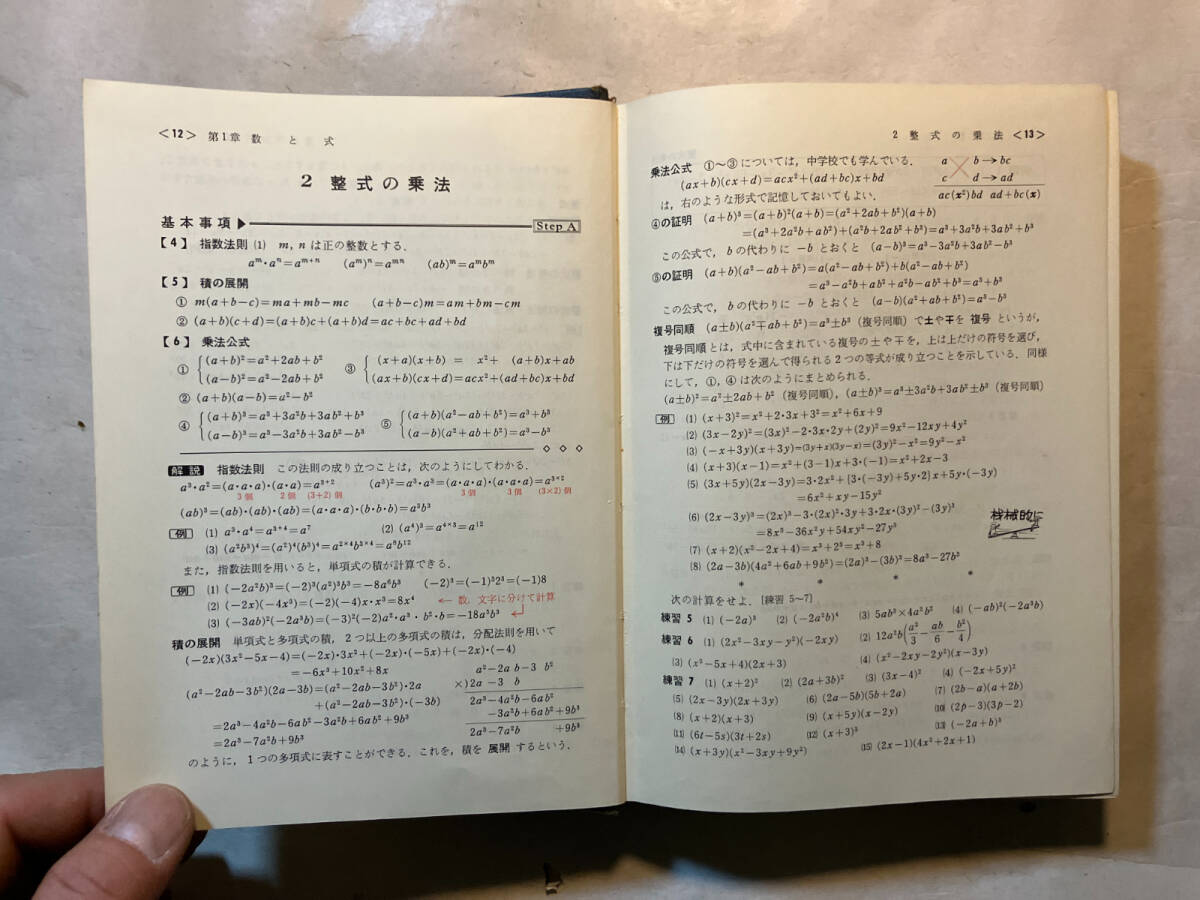 <12> 第1章 数 と 式
2 整式の乗法
基本事項 ▶ Step A
【4】 指数法則 (1) m, n は正の整数とする.
aᵐ·aⁿ=aᵐ⁺ⁿ (aᵐ)ⁿ=aᵐⁿ (ab)ᵐ=aᵐbᵐ
【5】 積の展開
① m(a+b−c)=ma+mb−mc (a+b−c)m=am+bm−cm
② (a+b)(c+d)=(a+b)c+(a+b)d=ac+bc+ad+bd
【6】 乗法公式
① (a+b)²=a²+2ab+b² ③ (x+a)(x+b) = x²+ (a+b)x+ab
(a−b)²=a²−2ab+b² (ax+b)(cx+d)=acx²+(ad+bc)x+bd
② (a+b)(a−b)=a²−b²
④ (a+b)³=a³+3a²b+3ab²+b³ ⑤ (a+b)(a²−ab+b²)=a³+b³
(a−b)³=a³−3a²b+3ab²−b³ (a−b)(a²+ab+b²)=a³−b³
◇ ◇ ◇
解説 指数法則 この法則の成り立つことは, 次のようにしてわかる.
a³·a²=(a·a·a)·(a·a)=a³⁺² (a³)²=a³·a³=(a·a·a)·(a·a·a)=a³ˣ²
3個 2個 (3+2)個 3個 3個 (3×2)個
(ab)³=(ab)·(ab)·(ab)=(a·a·a)·(b·b·b)=a³b³
例 (1) a³·a⁴=a³⁺⁴=a⁷ (2) (a⁴)³=a⁴ˣ³=a¹²
(3) (a²b³)⁴=(a²)⁴(b³)⁴=a²ˣ⁴b³ˣ⁴=a⁸b¹²
また, 指数法則を用いると, 単項式の積が計算できる.
例 (1) (−2a²b)³=(−2)³(a²)³b³=−8a⁶b³ (−2)³=(−1)³2³=(−1)8
(2) (−2x)(−4x³)=(−2)(−4)x·x³=8x⁴ ← 数, 文字に分けて計算
(3) (−3ab)²(−2a³b)=(−3)²(−2)a²·a³·b²·b=−18a⁵b³
積の展開 単項式と多項式の積, 2つ以上の多項式の積は, 分配法則を用いて
(−2x)(3x²−5x−4)=(−2x)·3x²+(−2x)·(−5x)+(−2x)·(−4)
=−6x³+10x²+8x a²−2a b−3 b²
(a²−2ab−3b²)(2a−3b)=(a²−2ab−3b²)·2a ×)2a −3 b
+(a²−2ab−3b²)·(−3b) 2a³−4a²b−6ab²
=2a³−4a²b−6ab²−3a²b+6ab²+9b³ −3a²b+6ab²+9b³
=2a³−7a²b+9b³ 2a³−7a²b +9b³
のように, 1つの多項式に表すことができる. これを, 積を 展開 するという.
2 整式の乗法 <13>
乗法公式 ①〜③については, 中学校でも学んでいる. a b→bc
(ax+b)(cx+d)=acx²+(ad+bc)x+bd c d→ad
は, 右のような形式で記憶しておいてもよい. ac(x²)bd ad+bc(x)
④の証明 (a+b)³=(a+b)²(a+b)=(a²+2ab+b²)(a+b)
=(a³+2a²b+ab²)+(a²b+2ab²+b³)=a³+3a²b+3ab²+b³
この公式で, bの代わりに −b とおくと (a−b)³=a³−3a²b+3ab²−b³
⑤の証明 (a+b)(a²−ab+b²)=a(a²−ab+b²)+b(a²−ab+b²)
=a³−a²b+ab²+a²b−ab²+b³=a³+b³
この公式で, bの代わりに −b とおくと (a−b)(a²+ab+b²)=a³−b³
複号同順 (a±b)(a²∓ab+b²)=a³±b³ (複号同順) で±や∓を 複号 というが,
複号同順とは, 式中に含まれている複号の±や∓を, 上は上だけの符号を選び,
下は下だけの符号を選んで得られる2つの等式が成り立つことを示している. 同様
にして, ①, ④は次のようにまとめられる.
(a±b)²=a²±2ab+b² (複号同順), (a±b)³=a³±3a²b+3ab²±b³ (複号同順)
例 (1) (x+3)²=x²+2·3x+3²=x²+6x+9
(2) (3x−2y)²=(3x)²−2·3x·2y+(2y)²=9x²−12xy+4y²
(3) (−x+3y)(x+3y)=(3y+x)(3y−x)=(3y)²−x²=9y²−x²
(4) (x+3)(x−1)=x²+(3−1)x+3·(−1)=x²+2x−3
(5) (3x+5y)(2x−3y)=3·2x²+{3·(−3y)+5y·2}x+5y·(−3y)
=6x²+xy−15y²
(6) (2x−3y)³=(2x)³−3·(2x)²·3y+3·2x·(3y)²−(3y)³
=8x³−36x²y+54xy²−27y³ 機械的に
(7) (x+2)(x²−2x+4)=x³+2³=x³+8
(8) (2a−3b)(4a²+6ab+9b²)=(2a)³−(3b)³=8a³−27b³
* * * *
次の計算をせよ. [練習 5~7]
練習 5 (1) (−2a)³ (2) (−2a²b)⁴ (3) 5ab³×4a²b² (4) (−ab)²(−2a³b)
練習 6 (1) (2x²−3xy−y²)(−2xy) (2) 12a²b(a²/3−ab/6−b²/4)
(3) (x³−5x+4)(2x+3) (4) (x²−2xy−2y²)(x−3y)
練習 7 (1) (x+2)² (2) (2a+3b)² (3) (3x−4)² (4) (−2x+5y)²
(5) (2x−3y)(2x+3y) (6) (2a−5b)(5b+2a) (7) (2b−a)(a+2b)
(8) (x+2)(x+3) (9) (x+5y)(x−2y) (10) (2p−3)(3p−2)
(11) (6t−5s)(3t+2s) (12) (x+3)³ (13) (−2a+b)³
(14) (x+3y)(x²−3xy+9y²) (15) (2x−1)(4x²+2x+1)